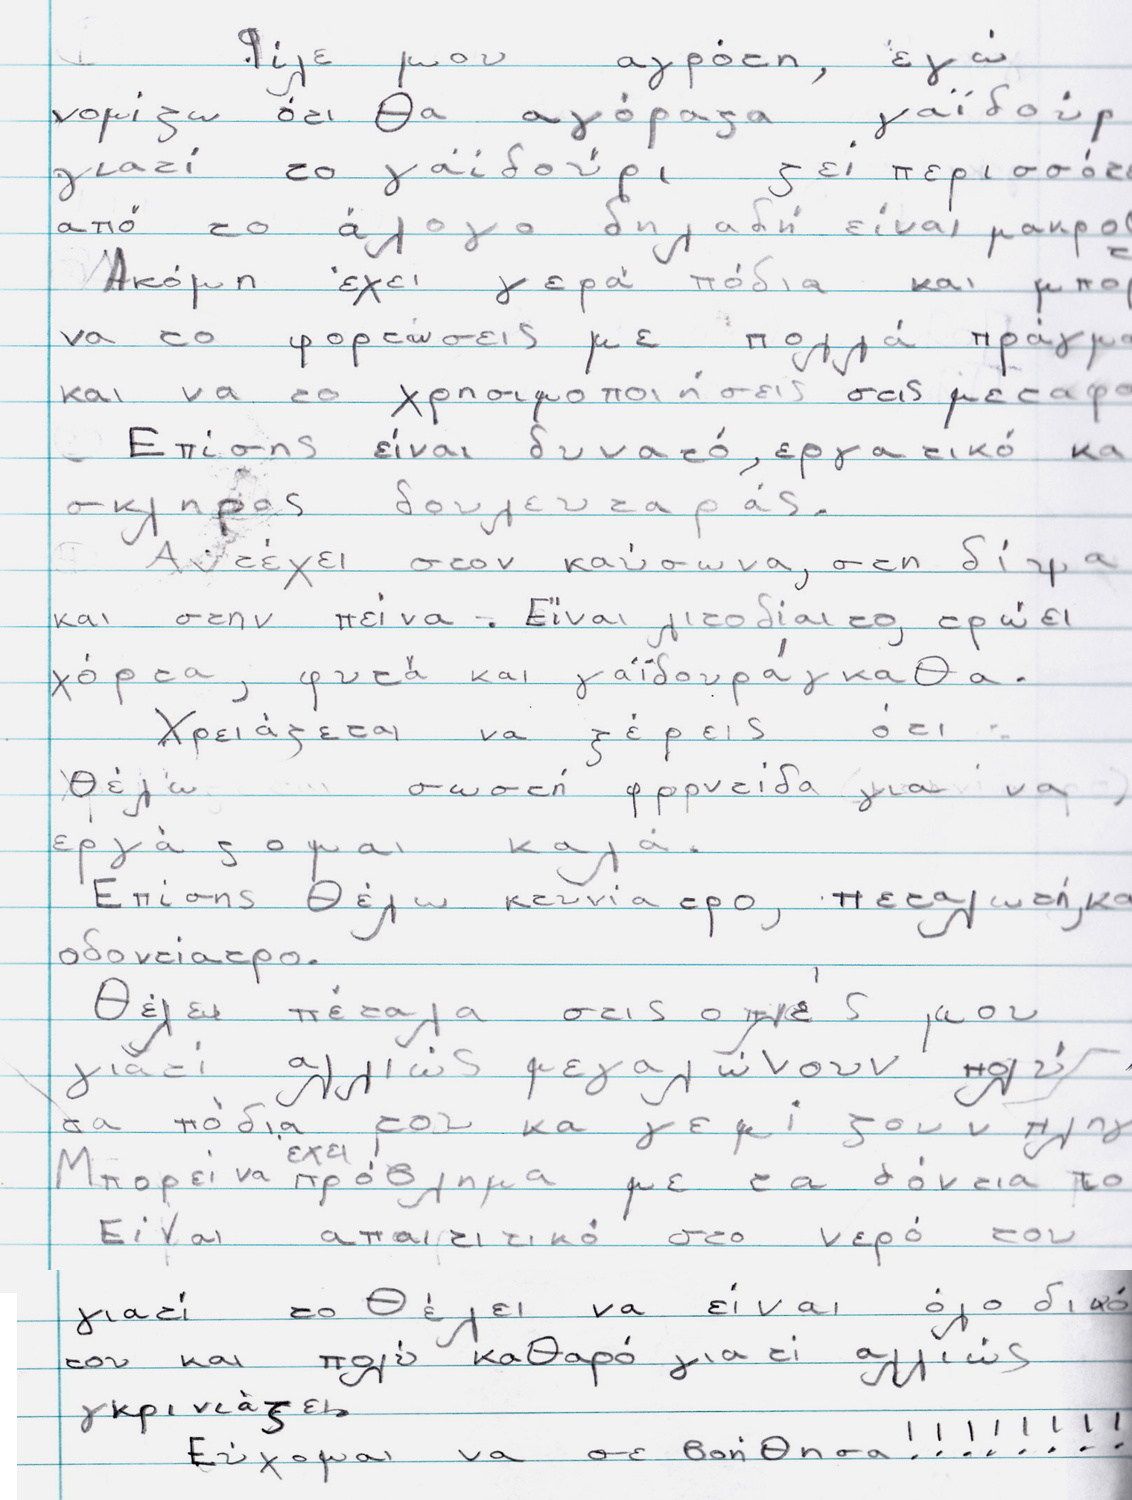 Φίλε μου αγρότη, έγώ
νομίζω ότι θα αγόραζα γαϊδούρ
γιατί το γαϊδούρι ζεί περισσότε
από το άλογο δηλαδή είναι μακρο
Ακόμη έχει γερά πόδια και μπορ
να το φορτώσεις με πολλά πράγμα
και να το χρησιμοποιήσεις στις μεταφο
Επίσης είναι δυνατό, εργατικό κα
σκληρός δουλευταράς.
Αντέχει στον καύσωνα, στη δίψα
και στην πείνα. Είναι λιτοδίαιτο, τρώει
χόρτα, φυτά και γαϊδουράγκαθα.
Χρειάζεται να ξέρεις ότι
θέλω σωστή φροντείδα για να
εργάζομαι καλά.
Επίσης θέλω κτυνίατρο, πεταλωτή, κα
οδοντίατρο.
Θέλει πέταλα στις οπλές μου
γιατί αλλιώς μεγαλώνουν πολύ
τα πόδια του κα γεμίζουν πληγ
Μπορεί να έχει πρόβλημα με τα δόντια το
Είναι απαιτιτικό στο νερό του
γιατί το θέλει να είναι όλο δικό
του και πολύ καθαρό γιατί αλλιώς
γκρινιάζει.
Εύχομαι να σε βοήθησα!!!!!!!!